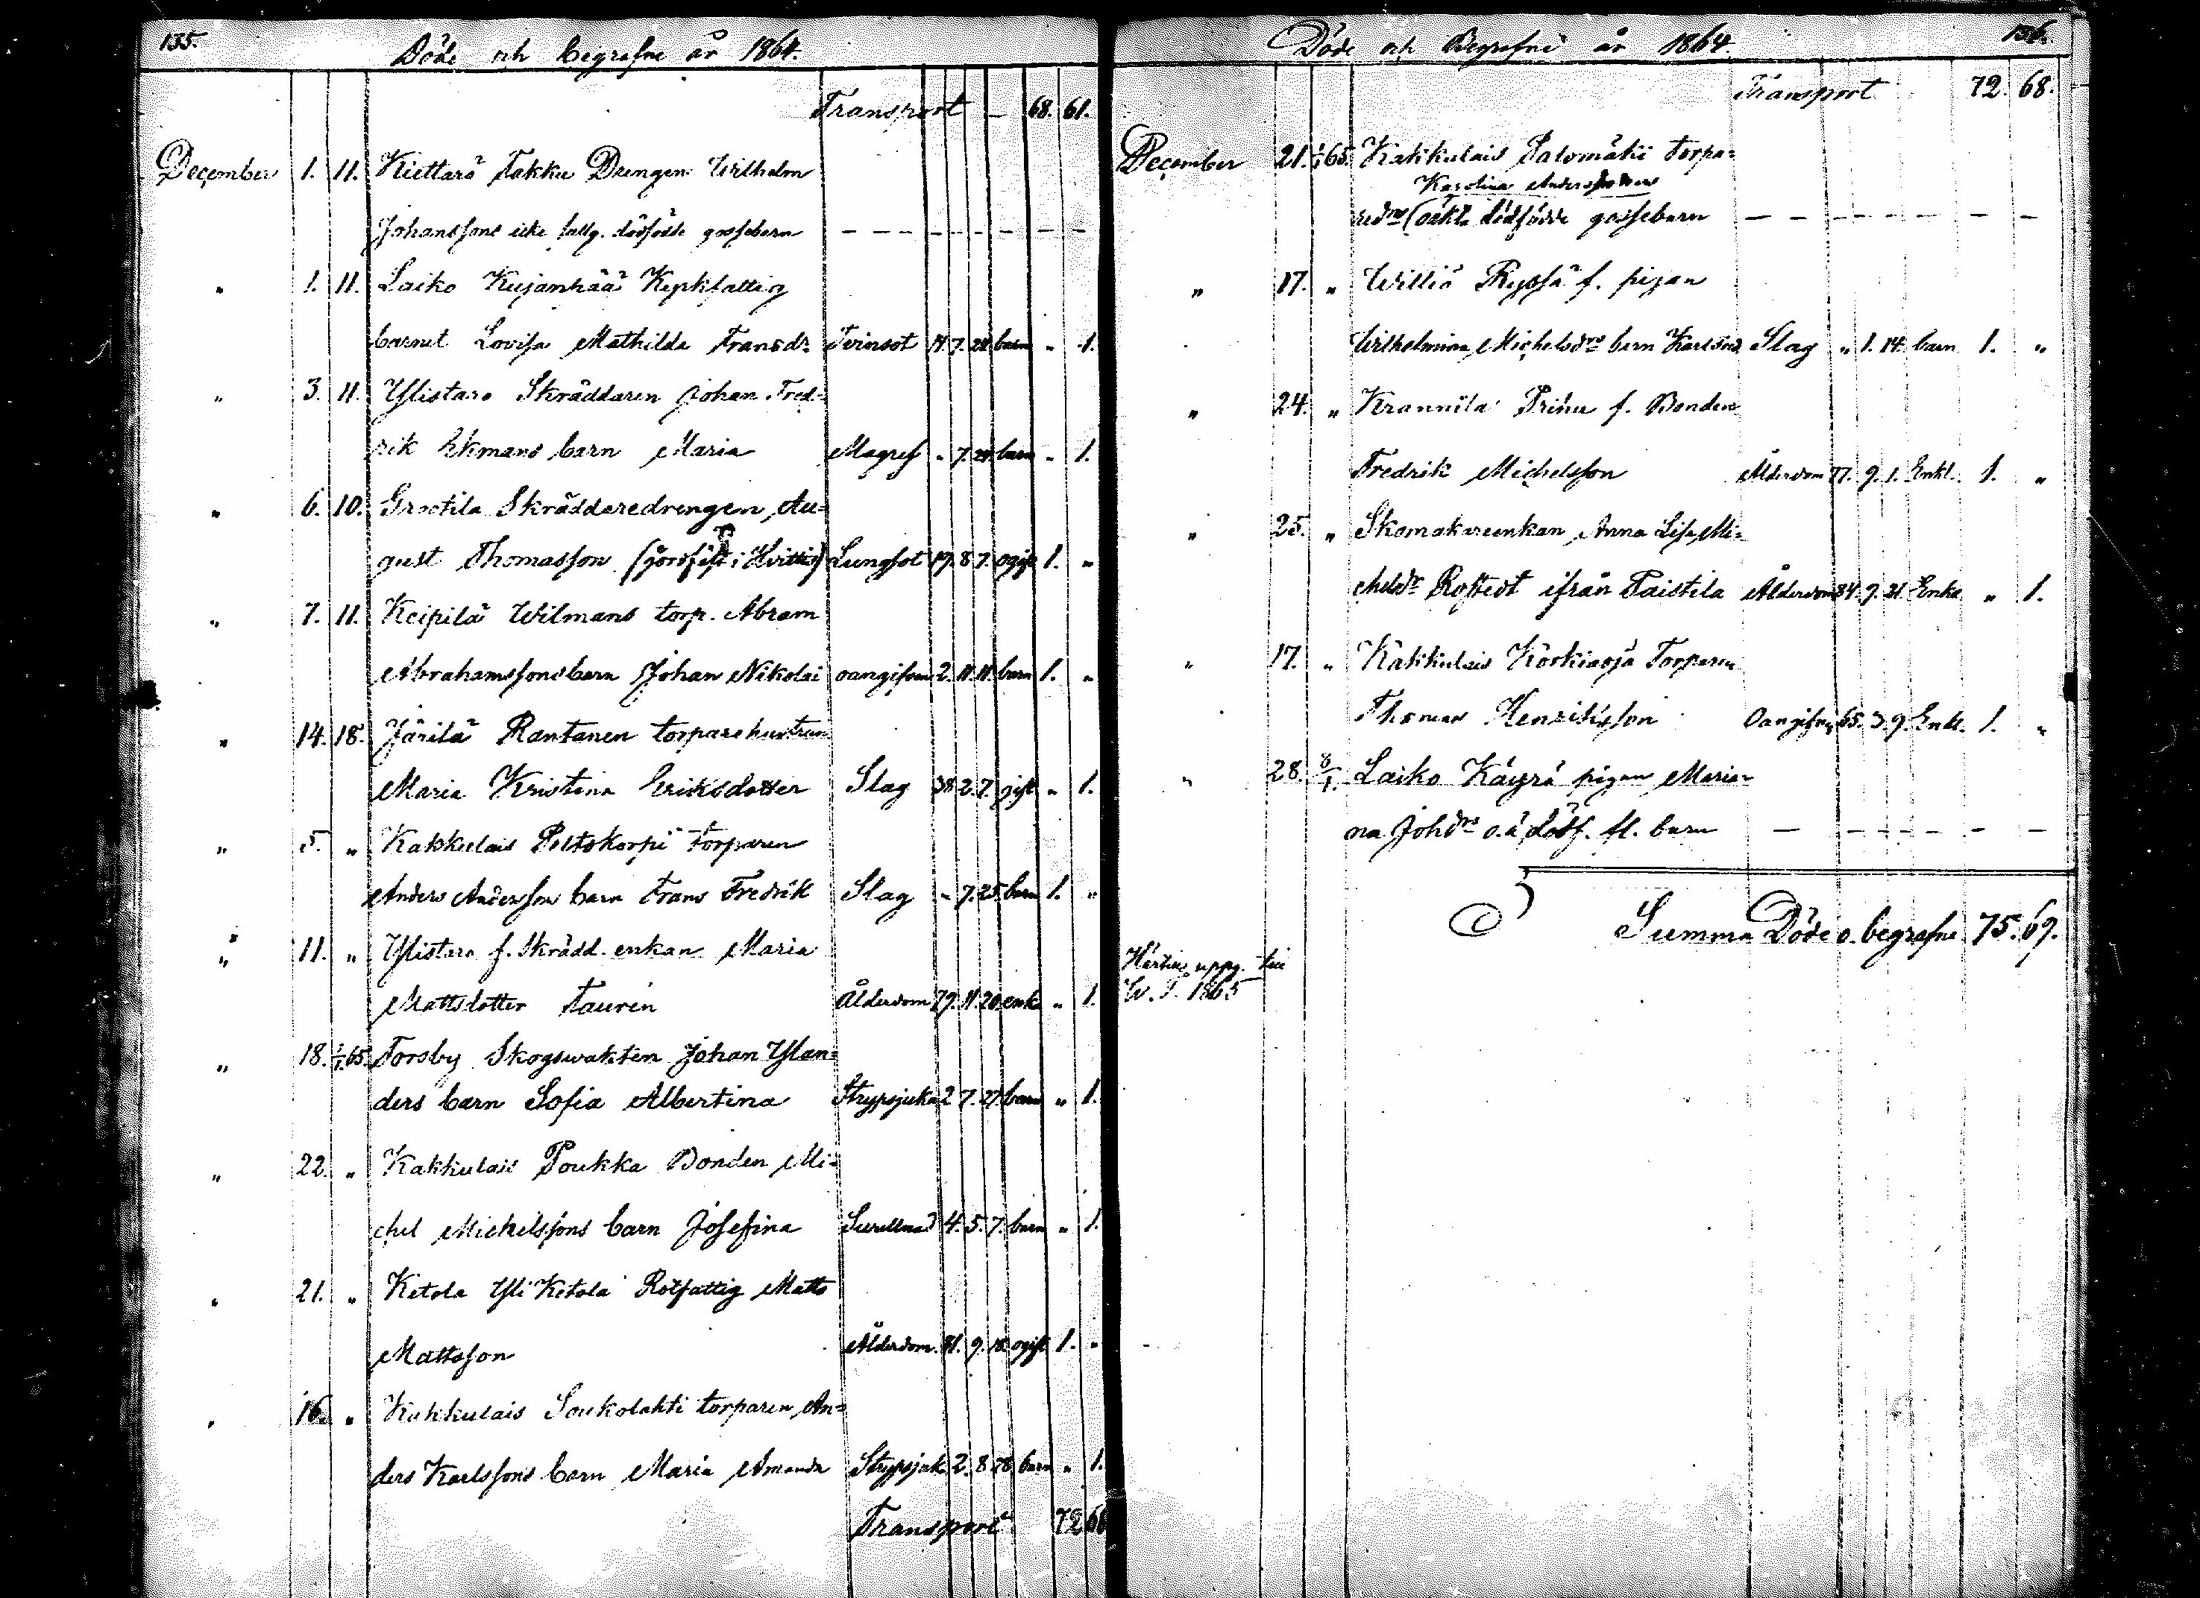 135.
Döde och begrafne år 1864.
Transport — 68. 61.
December 1. 11. Kiettarö Takku Drengen Wilhelm
Johanssons icke fullg. dödfödde gossebarn — — — — — — — —
" 1. 11. Laiko Kujanpää Kyrkfattig
barnet Lovisa Mathilda Fransdr Tvinsot 14 7. 28 barn " 1.
" 3. 11. Ylistaro Skräddaren Johan Fred-
rik Ekmans barn Maria Magref " 7. barn " 1.
" 6. 10. Grootila Skräddaredrengen Au-
gust Thomasson (jordfäst i Hvittis) Lungsot 19. 8 7. ogift 1. "
" 7. 11. Keipilä Wilmans torp. Abram
Abrahamssons barn Johan Nikolai oangifven 2. 11. 11. barn 1. "
" 14. 18. Järilä Rantanen torparehustrun
Maria Kristina Eriksdotter Slag 38 2. 7. gift " 1.
" 5. " Kakkulais Peltokorpi torparen
Anders Andersson barn Frans Fredrik Slag " 7. 25. barn 1. "
" 11. " Ylistaro f. Skrädd. enkan Maria
Mattsdotter Taurén Ålderdom 79. 11. 20. enka " 1.
" 18. 1/1 65. Forsby Skogswakten Johan Ylan-
ders barn Sofia Albertina Strypsjuka 2 7. 27. barn " 1.
" 22. " Kakkulais Poukka Bonden Mi-
chel Michelssons barn Josefina 4. 5. 7. barn " 1.
" 21. " Ketola Yli Ketola Rotfattig Matts
Mattsson Ålderdom. 81. 9. 18. ogift 1. "
" 16. " Kakkulais Soukolahti torparen An-
ders Karlssons barn Maria Amanda Strypsjuk 2. 8. 28 barn " 1.
Transport 72 68
136.
Döde och Begrafne år 1864.
Transport 72. 68.
December 21. 1/1 65. Kakkulais Salomäki torpa-
Karolina Andersdotters
redrs oäkta dödfödde gossebarn — — — — — — —
" 17. " Williö Ryssä f. pigan
Wilhelmina Michelsdrs barn Karl Slag " 1. 14. barn 1. "
" 24. " Krannila Prihu f. Bonden
Fredrik Michelsson Ålderdom 77. 9. 1. Enkl. 1. "
" 25. " Skomakareenkan Anna Lisa Mi-
chelsdr Rostedt ifrån Paistila Ålderdom 84. 9. 21. Enka " 1.
" 17. " Kakkulais Korkiaoja Torparen
Thomas Henriksson Oangifven 65. 3. 9. Enkl. 1. "
" 28. 8/1. Laiko Käyrä pigan Maria-
na Johdrs o.ä. dödf. fl. barn — — — — — — —
Summa Döde o. begrafne 75. 69.
Härtill uppg. till
W. S. 1865